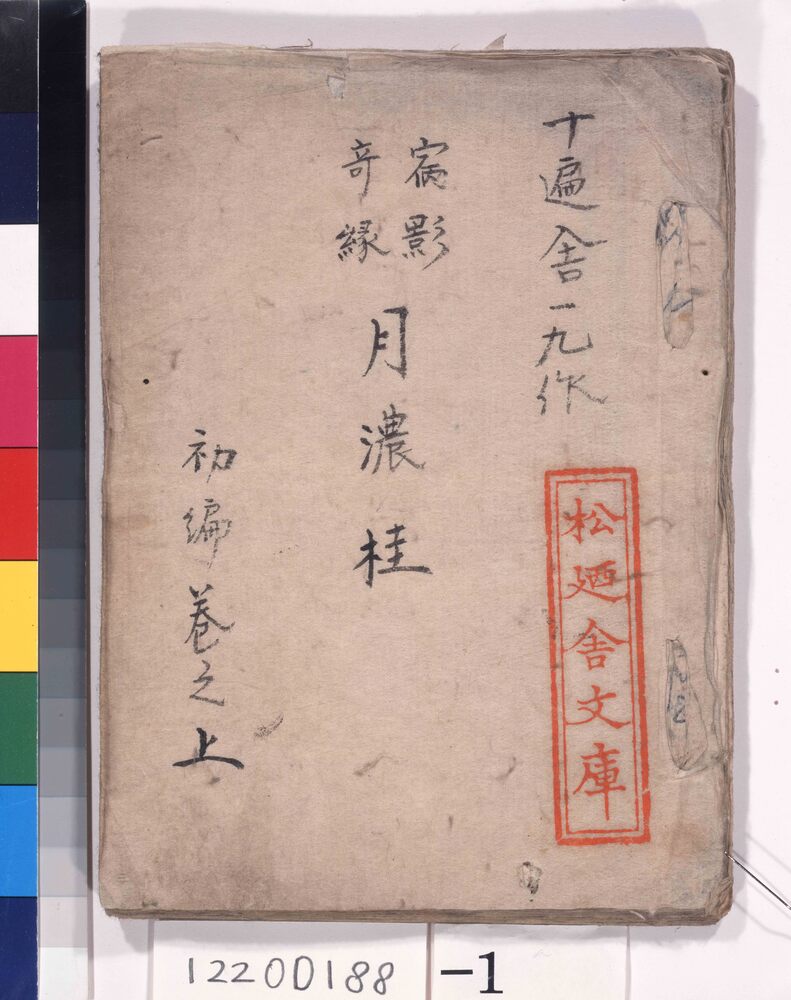 十遍舎一九作
影
奇縁
月濃桂
初編巻之上
松廼舎文庫
1220D188
-1